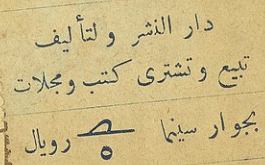 دار النشر و لتأليف
تبيع و تشترى كتب ومجلات
بجوار سينما رويال